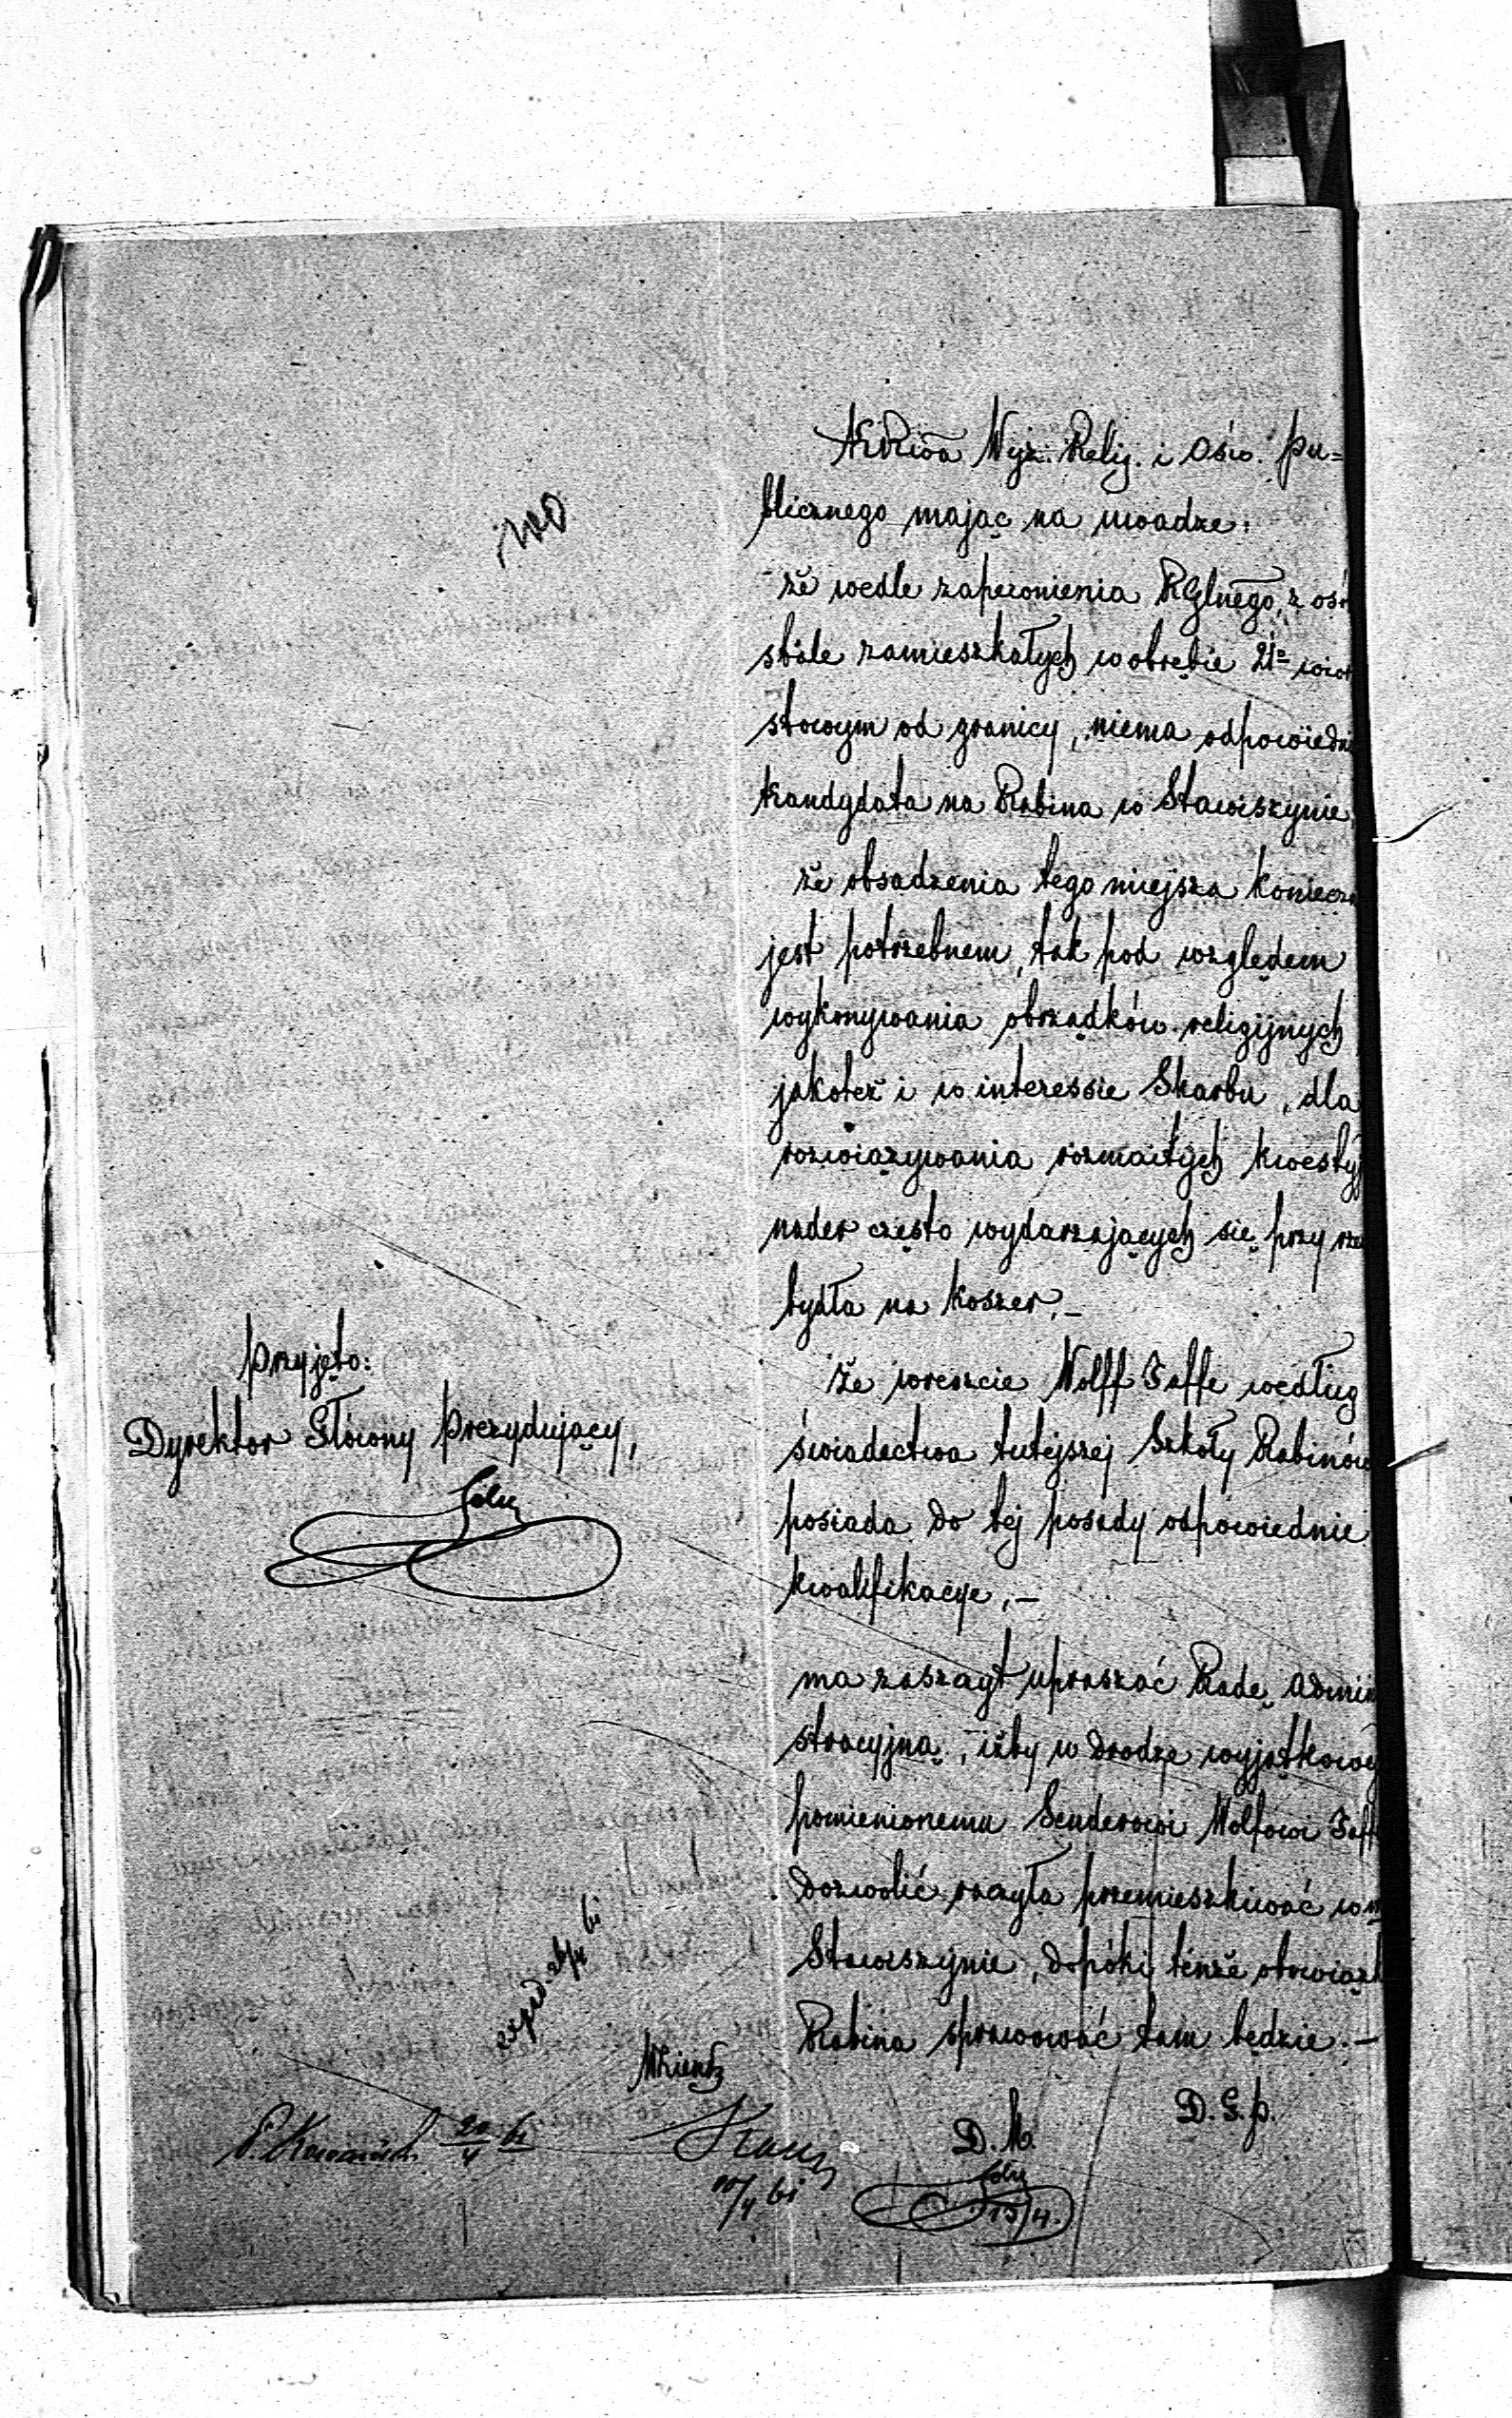 Wyz. Relig. i Ośw. Pu=
blicznego mając na uwadze:
że wedle zapewnienia RGlnego, z osó
stale zamieszkałych w obrębie 21= wior
stowym od granicy, niema odpowiedni
Kandydata na Rabina w Stawiszynie,
że obsadzenia tego miejsca Konieczn
jest potrzebnem, tak pod względem
wykonywania obrządków religijnych
jakoteż i w interessie Skarbu, dla
rozwiązywania rozmaitych kwestyj
nader często wydarzających się przy rze
bydła na koszer,–
Że wreszcie Wolff Jaffe według
świadectwa tutejszej Szkoły Rabinów
posiada do tej posady odpowiednie
kwalifikacye,–
ma zaszczyt upraszać Radę Admini
stracyjną, iżby w drodze wyjątkowéj
pomienionemu Senderowi Wolfowi Jaff
dozwolić raczyła przemieszkiwać w m
Stawiszynie, dopóki tenże obowiązk
Rabina sprawować tam będzie.–
D. G. P.
D. M.
15/4.
Przyjęto:
Dyrektor Główny Prezydujący,
exped. 61
20/4 61
/4 61